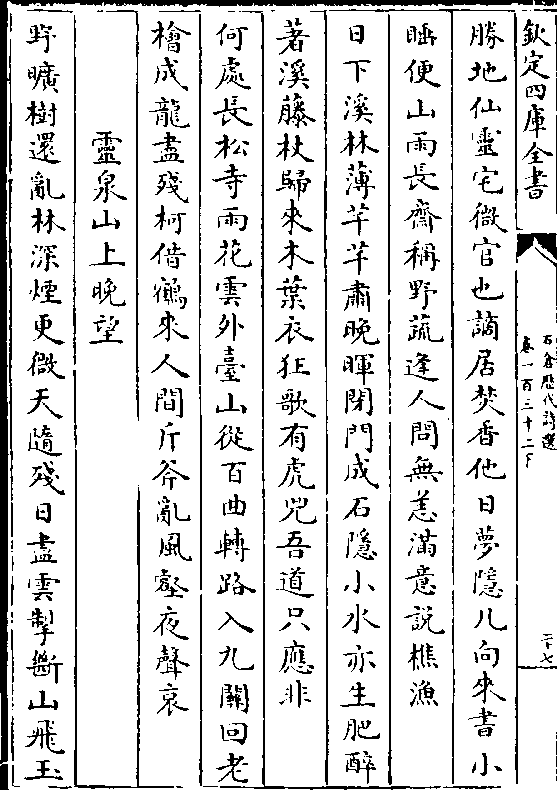 欽定四庫全書
石倉歷代詩選
卷一百三十二下
二十七
勝地仙靈宅微官也謫居焚香他日夢隱几向來書小
睡便山雨長齋稱野蔬逢人問無恙滿意説樵漁
日下溪林薄芊芊肅晚暉閉門成石隱小水亦生肥醉
著溪藤杖歸來木葉衣狂歌有虎兕吾道只應非
何處長松寺雨花雲外臺山從百曲轉路入九關回老
檜成龍盡殘柯借鶴來人間斤斧亂風壑夜聲哀
靈泉山上晚望
野曠樹還亂林深煙更微天隨殘日盡雲掣斷山飛玉